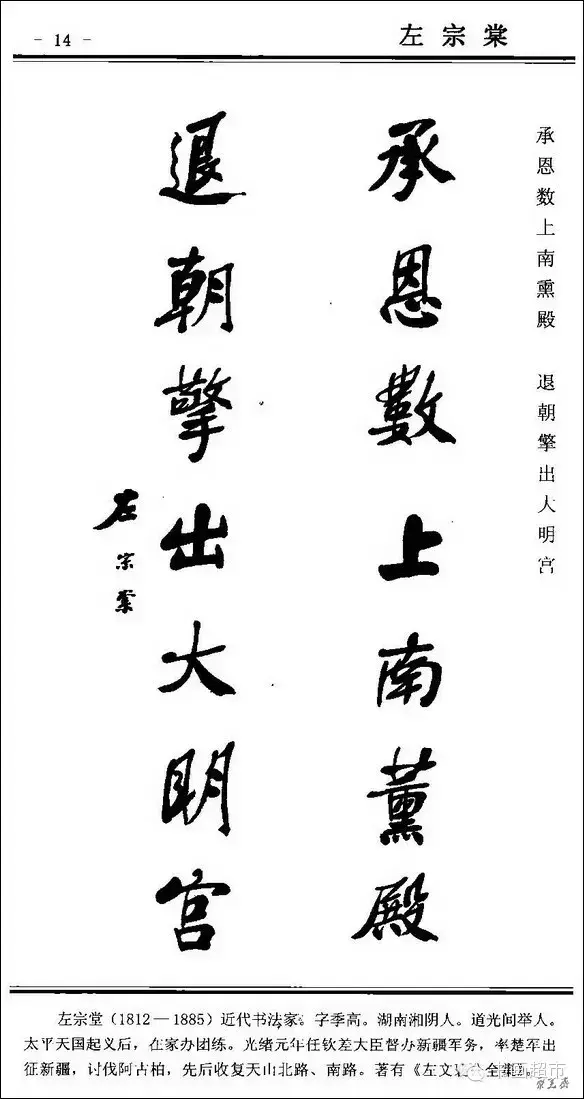 - 14 -
左宗棠
承恩数上南熏殿 退朝擎出大明宫
承恩數上南薰殿
退朝擎出大明宫
左宗棠
左宗堂（1812—1885）近代书法家。字季高。湖南湘阴人。道光间举人。
太平天国起义后，在家办团练。光绪元年任钦差大臣督办新疆军务，率楚军出
征新疆，讨伐阿古柏，先后收复天山北路、南路。著有《左文 全集》。
画超市